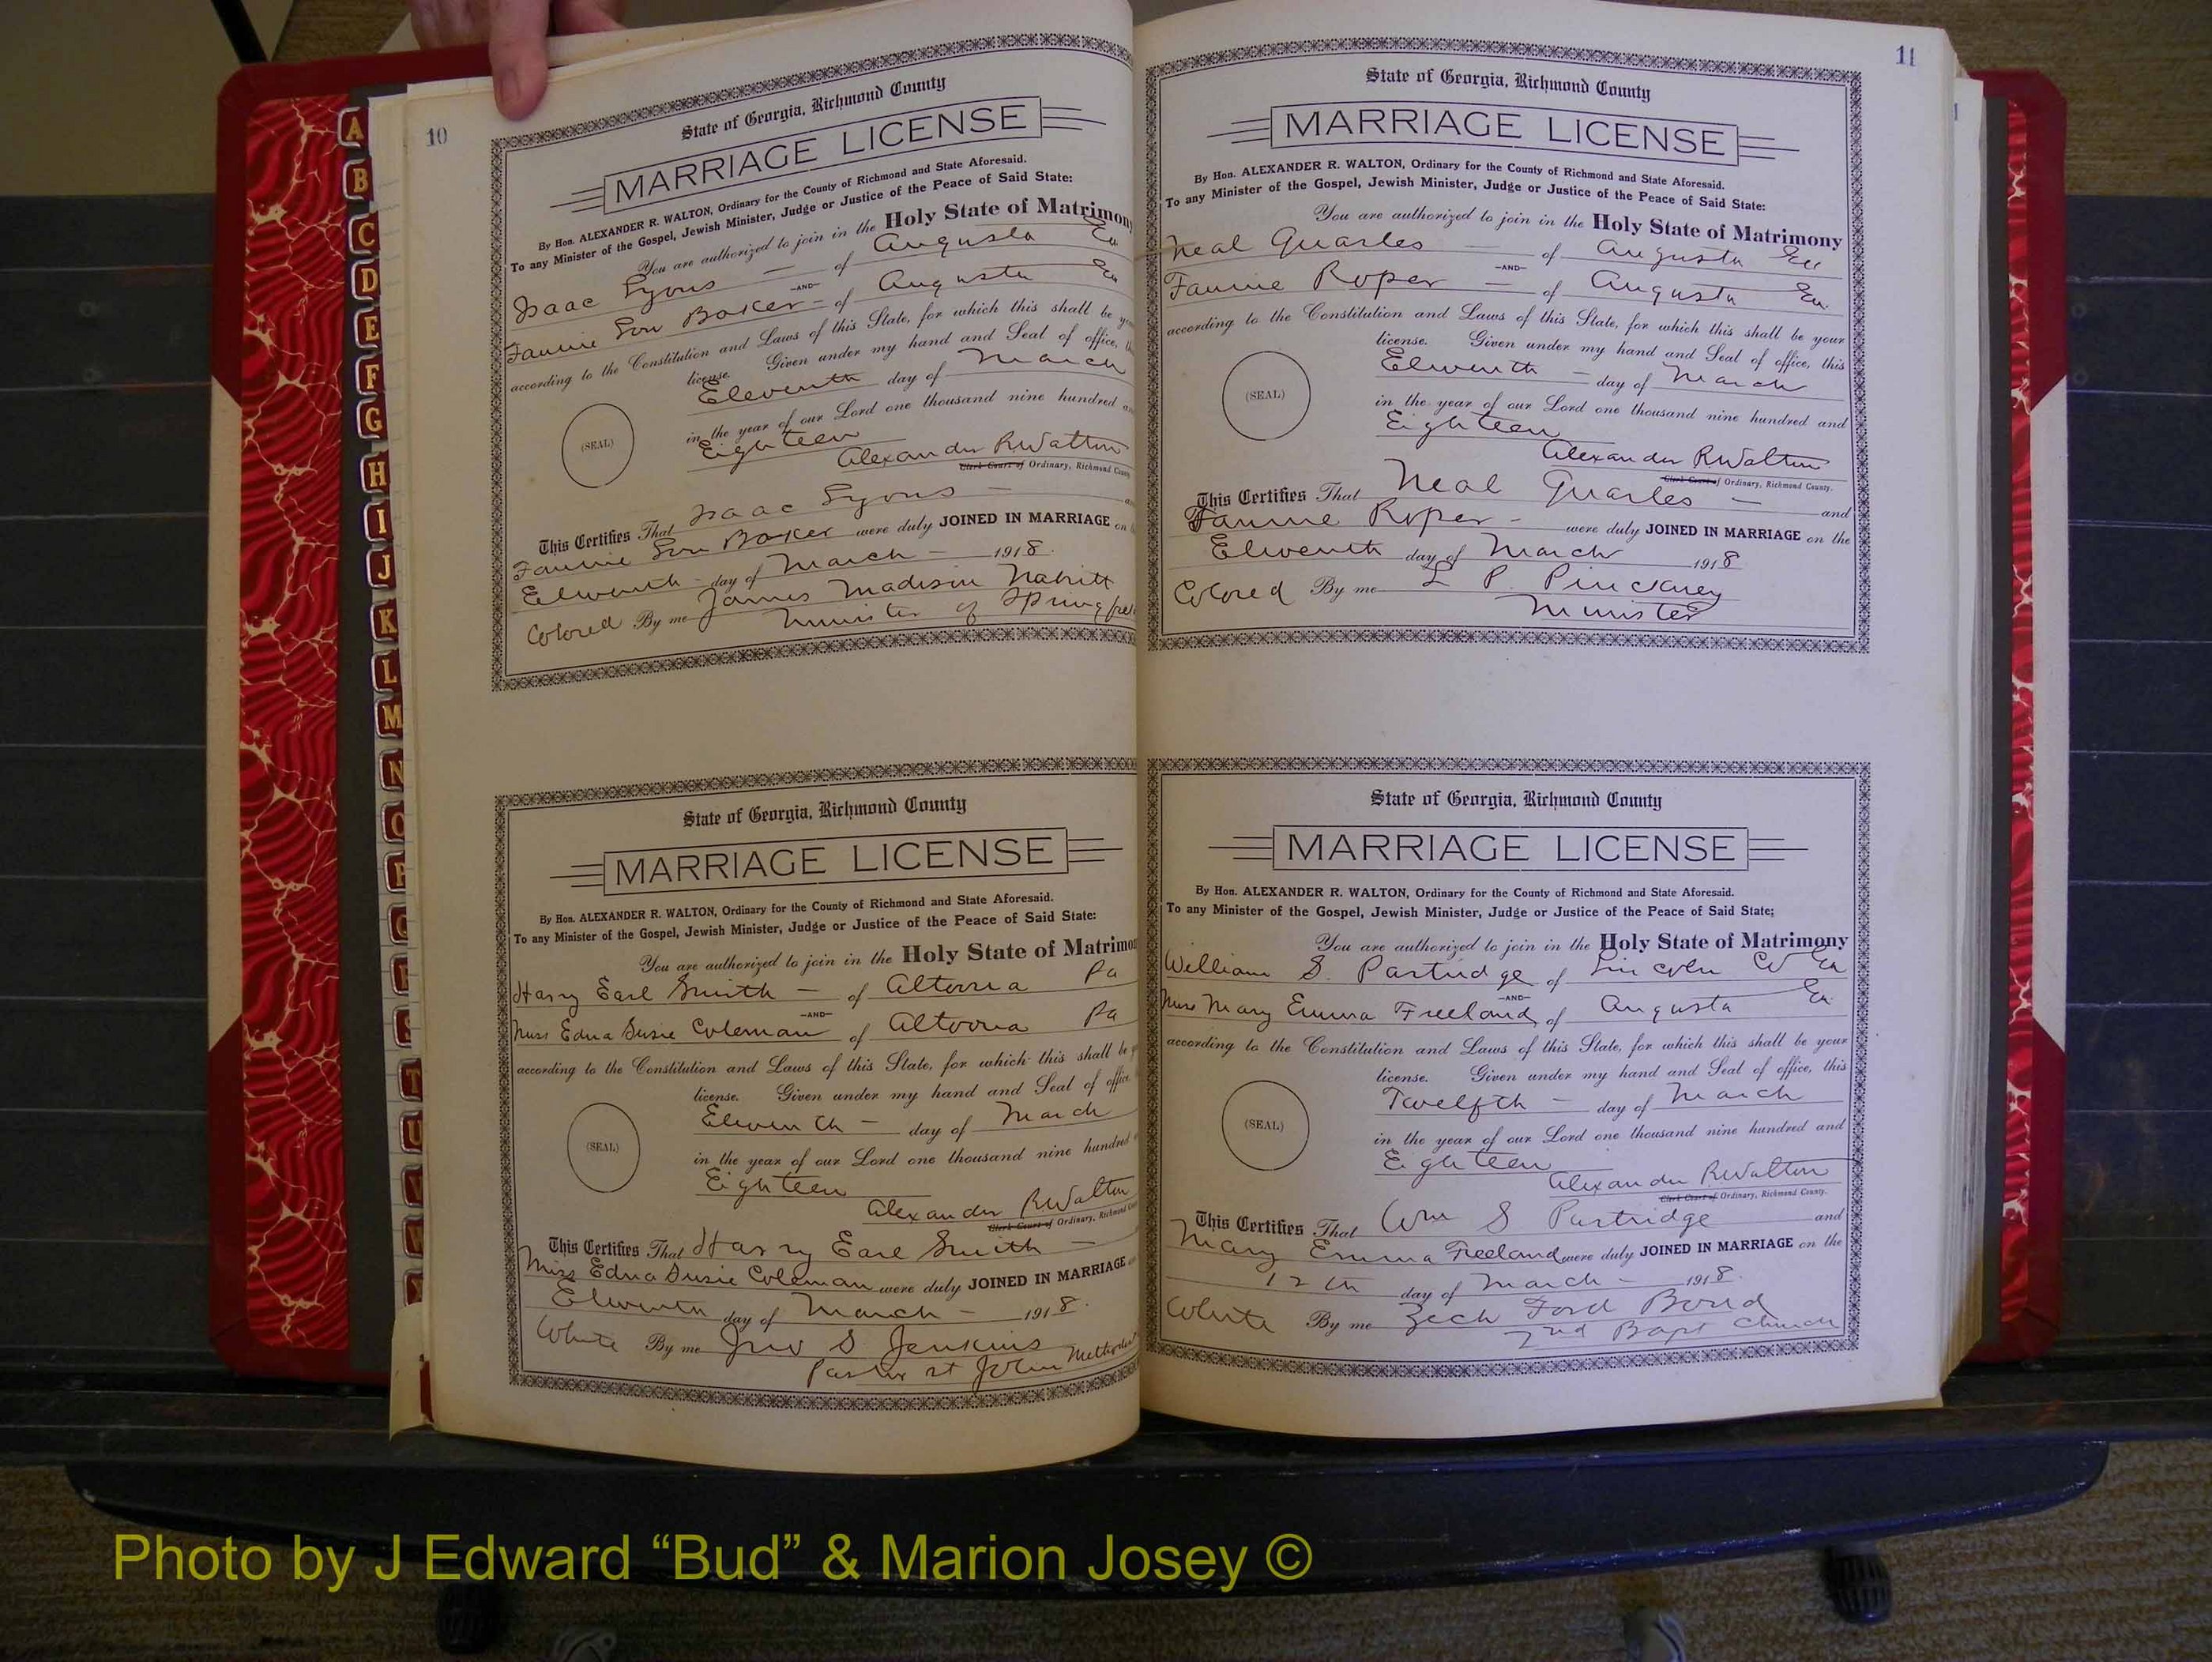 10
State of Georgia, Richmond County
MARRIAGE LICENSE
By Hon. ALEXANDER R. WALTON, Ordinary for the County of Richmond and State Aforesaid.
To any Minister of the Gospel, Jewish Minister, Judge or Justice of the Peace of Said State:
You are authorized to join in the Holy State of Matrimony
Isaac Lyons — of Augusta Ga
—AND—
Fannie Lou Baker - of Augusta Ga
according to the Constitution and Laws of this State, for which this shall be
license. Given under my hand and Seal of office,
Eleventh day of March
in the year of our Lord one thousand nine hundred
Eighteen
(SEAL)
Alexander R Walton
Clerk Court of Ordinary, Richmond County
This Certifies That Isaac Lyons —
Fannie Lou Baker were duly JOINED IN MARRIAGE on
Eleventh - day of March — 1918.
Colored By me James Madison Nabritt
Minister of
State of Georgia, Richmond County
MARRIAGE LICENSE
By Hon. ALEXANDER R. WALTON, Ordinary for the County of Richmond and State Aforesaid.
To any Minister of the Gospel, Jewish Minister, Judge or Justice of the Peace of Said State:
You are authorized to join in the Holy State of
Harry Earl Smith — of Altoona Pa
—AND—
Miss Edna Susie Coleman of Altoona Pa
according to the Constitution and Laws of this State, for which this shall be
license. Given under my hand and Seal of office
Eleventh — day of March
in the year of our Lord one thousand nine hundred
Eighteen
(SEAL)
Alexander R Walton
Clerk Court of Ordinary, Richmond
This Certifies That Harry Earl Smith —
Miss Edna Susie Coleman were duly JOINED IN MARRIAGE
Eleventh day of March — 1918.
White By me Jno S Jenkins
Pastor St John Methodist
11
State of Georgia, Richmond County
MARRIAGE LICENSE
By Hon. ALEXANDER R. WALTON, Ordinary for the County of Richmond and State Aforesaid.
To any Minister of the Gospel, Jewish Minister, Judge or Justice of the Peace of Said State:
You are authorized to join in the Holy State of Matrimony
Neal Quarles — of Augusta Ga
—AND—
Fannie Roper — of Augusta Ga.
according to the Constitution and Laws of this State, for which this shall be your
license. Given under my hand and Seal of office, this
Eleventh — day of March
in the year of our Lord one thousand nine hundred and
Eighteen
(SEAL)
Alexander R Walton
Clerk Court of Ordinary, Richmond County.
This Certifies That Neal Quarles — and
Fannie Roper - were duly JOINED IN MARRIAGE on the
Eleventh day of March 1918
Colored By me L P. Pinckney
Minister
State of Georgia, Richmond County
MARRIAGE LICENSE
By Hon. ALEXANDER R. WALTON, Ordinary for the County of Richmond and State Aforesaid.
To any Minister of the Gospel, Jewish Minister, Judge or Justice of the Peace of Said State;
You are authorized to join in the Holy State of Matrimony
William S. Partridge of Lincoln Co Ga
—AND—
Miss Mary Emma Freeland of Augusta Ga.
according to the Constitution and Laws of this State, for which this shall be your
license. Given under my hand and Seal of office, this
Twelfth — day of March
in the year of our Lord one thousand nine hundred and
Eighteen
(SEAL)
Alexander R Walton
Clerk Court of Ordinary, Richmond County.
This Certifies That Wm S Partridge and
Mary Emma Freeland were duly JOINED IN MARRIAGE on the
12th day of March — 1918.
White By me Zech Ford Bond
2nd Bapt Church
A
B
C
D
E
F
G
H
I
J
K
L
M
N
O
P
Q
R
S
T
U
V
W
X
Photo by J Edward “Bud” & Marion Josey ©